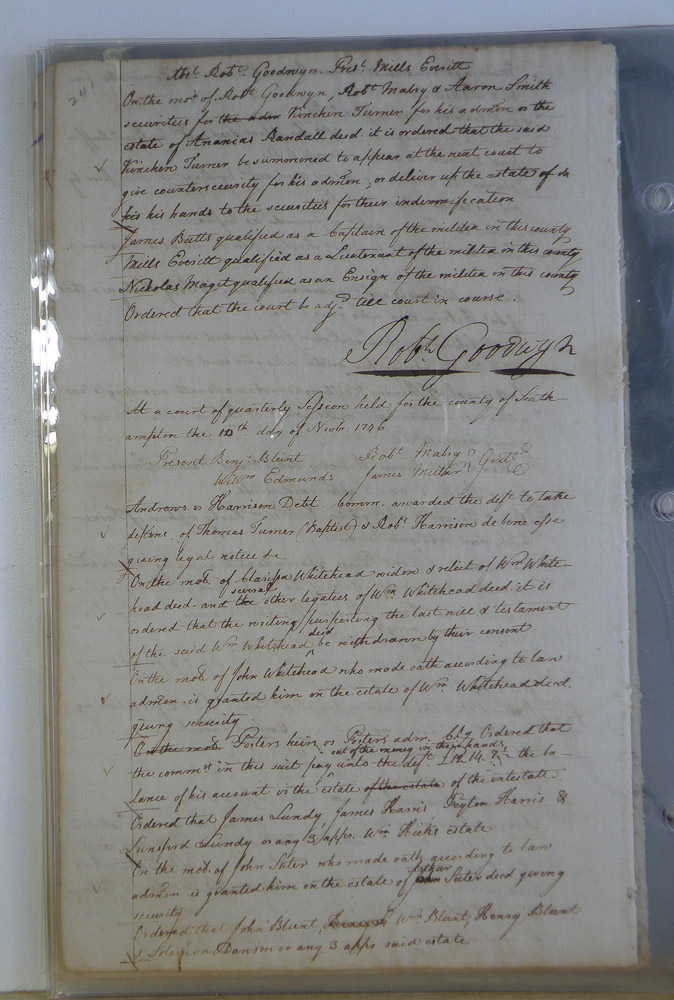 241
Abst. Robt. Goodwyn. Prest. Mills Everitt
On the mon. of Robt Goodwyn, Robt Mabry & Aaron Smith
securities for the adm Kinchen Turner for his admon on the
estate of Ananias Randall decd. it is ordered that the said
Kinchen Turner be summoned to appear at the next court to
give countersecurity for his admon, or deliver up the estate of in
his his hands to the securities for their indemnification
James Butts qualified as a Captain of the militia in this county
Mills Everitt qualified as a Lieutenant of the militia in this county
Nicholas Maget qualified as an Ensign of the militia in this county
Ordered that the court be adjd. till court in course.
Robt. Goodwyn
At a court of quarterly Session held for the county of South-
ampton the 10th day of Novb. 1796
Present Benja. Blunt Robt. Mabry Gentn.
Willm Edmunds James Miller
Andrews vs Harrison Debt. Comm. awarded the deft. to take
depons. of Thomas Turner (Baptist) & Robt. Harrison de bene esse
giving legal notice &c
On the mon. of Clarissa Whitehead widow & relict of Wm White-
head decd. and the several other legatees of Wm Whitehead decd. it is
ordered that the writing purporting the last will & testament
of the said Wm. Whitehead decd be withdrawn by their consent
On the mon. of John Whitehead who made oath according to law
admon. is granted him on the estate of Wm. Whitehead decd.
giving security
On the mon. Porters heirs vs Porters adm. Ordered that
the commrs. in this suit pay out of the money in their hands unto the deft. £12.14.7 the ba-
lance of his account vs the estate of the estate of the intestate
Ordered that James Lundy, James Harris Peyton Harris &
Lunsford Lundy or any 3 appr. Wm Hicks estate
On the mon. of John Suter who made oath according to law
admon is granted him on the estate of Arthur Suter decd giving
security
Ordered that John Blunt, Wm Blunt, Henry Blunt
& Solomon Dawson or any 3 appr said estate